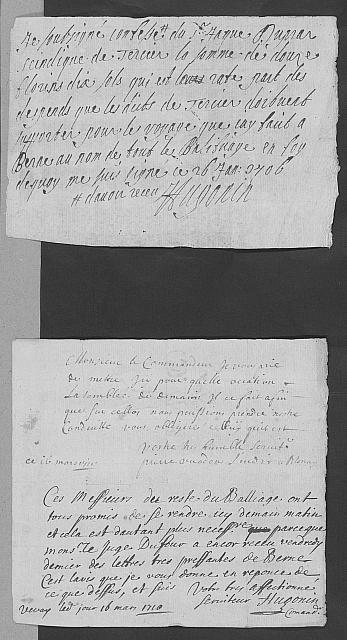 Je soubsigné confesse # du Sr. Hanne Durrar
scindique de Tercier la somme de douze
florins dix sols qui est leur rate part des
despends que le dits de Tercier doibvent
supporter pour le voyage que jay faict a
Berne au nom de tout le Balliage en foy
dequoy me suis signé ce 26 Jan: 1706
# davoir receu Hugonin
Monsieur le Commandeur Je vous prie
de metre Icy pour quelle ocation
La samblee de demains Il ce fait afin
que sur cella nous puissions prendre nostre
Conduitte vous obligeres celluy qui est
vostre tres humble servitr
ce 16 mars 1710
Ces Messieurs du reste du Balliage ont
tous promis de se rendre icy demain matin
et cela est dautant plus necessre parceque
Monsr le Juge Dufour a encor receu vendredy
dernier des lettres tres pressantes de Berne
C'est lavis que je vous donne en reponce de
ce que dessus, et suis Votre tres affectionné
serviteur Hugonin
Vevay le jour 16 mars 1710 Comandr